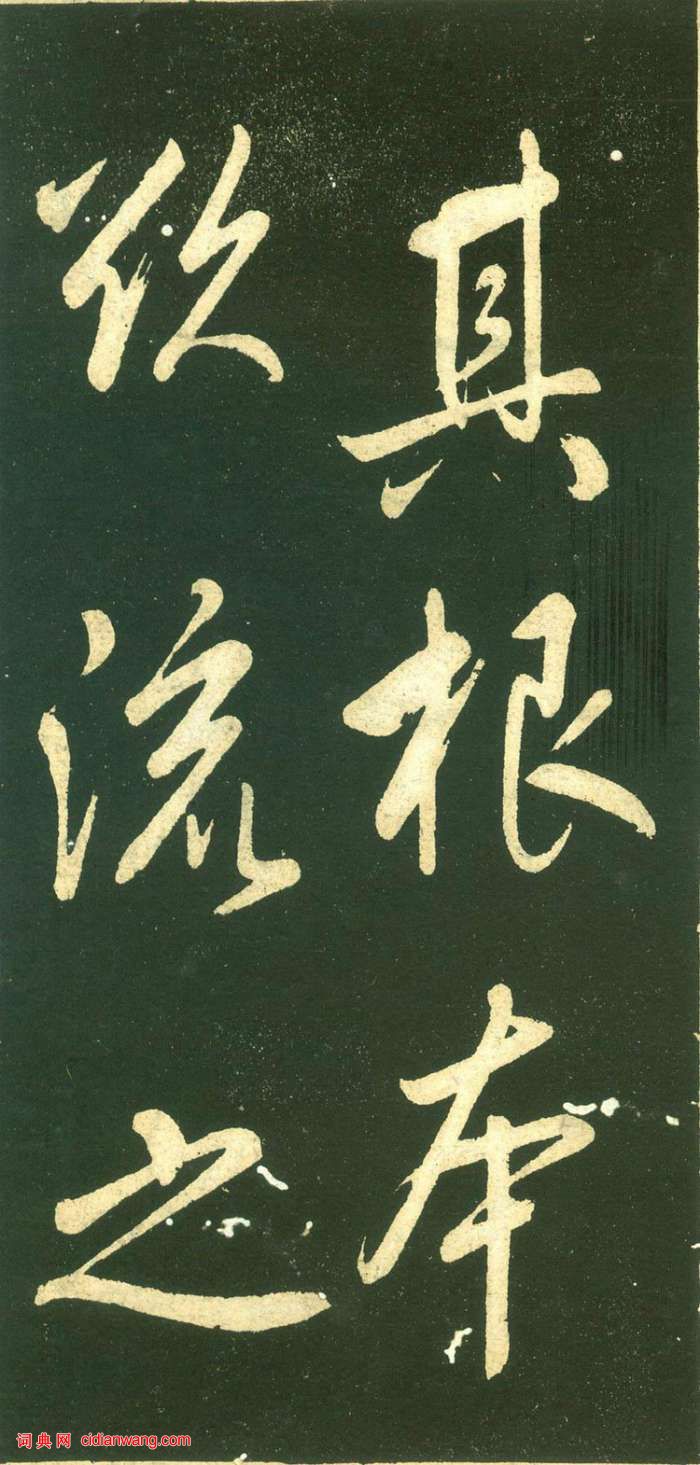 其根本
欲流之
词典网 cidianwang.com